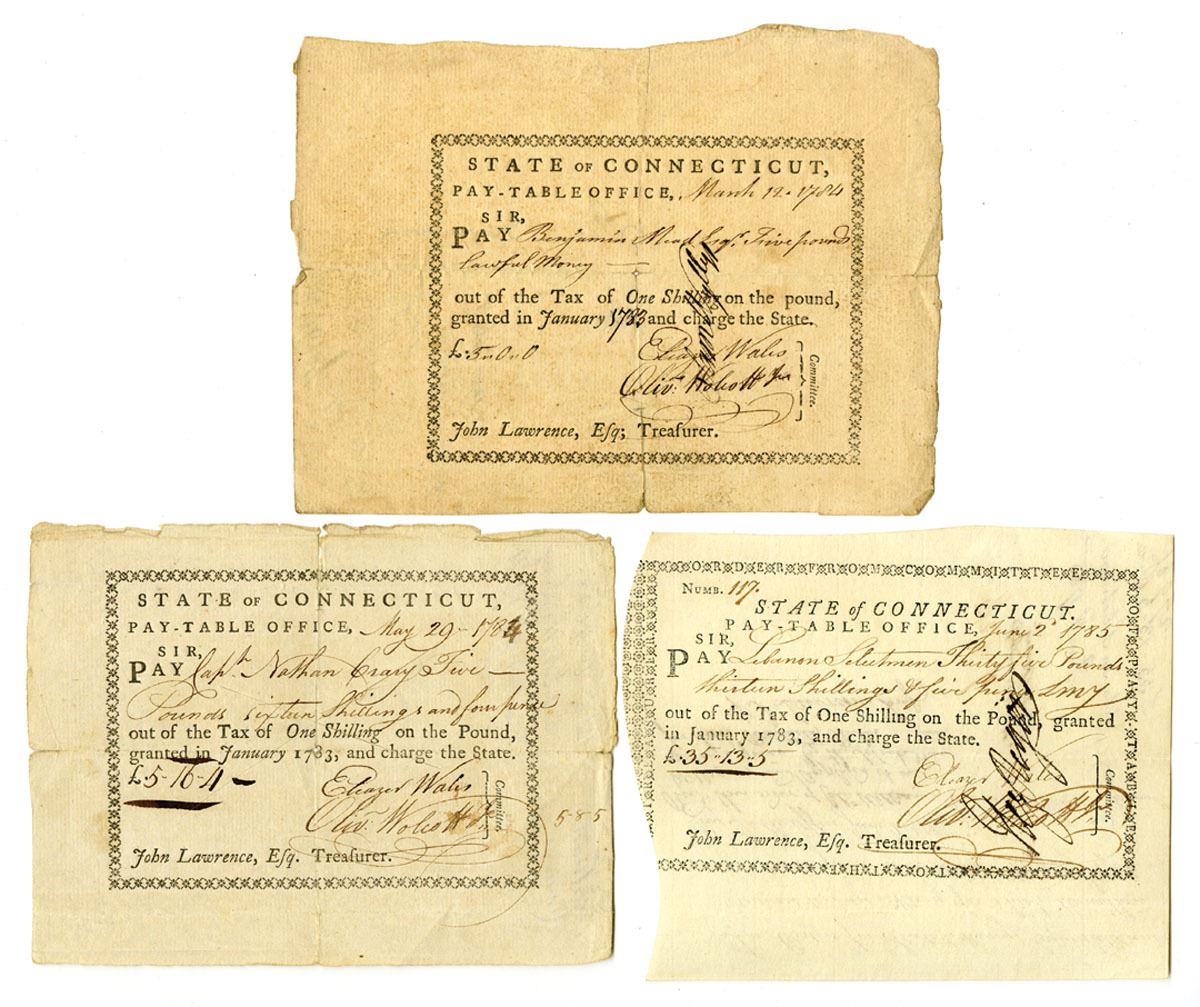 STATE OF CONNECTICUT,
PAY-TABLE OFFICE, March 12. 1784
SIR,
PAY Benjamin Mead Esqr. Five pounds
Lawful Money
out of the Tax of One Shilling on the pound,
granted in January 1783 and charge the State.
£.5"0"0 Eleazer Wales
Olivr. Wolcott Jr
Committee.
John Lawrence, Eſq; Treaſurer.
STATE OF CONNECTICUT,
PAY-TABLE OFFICE, May 29- 1784
SIR,
PAY Capt. Nathan Crary Five
Pounds sixteen Shillings and four pence
out of the Tax of One Shilling on the Pound,
granted in January 1783, and charge the State.
£.5-16-4
Eleazer Wales
Oliv. Wolcott Jr.
Committee
585
John Lawrence, Eſq. Treaſurer.
ORDER FROM COMMITTEE
OF PAY-TABLE
TO THE
NUMB. 117.
STATE of CONNECTICUT.
PAY-TABLE OFFICE, June 2d 1785
SIR,
PAY Lebanon Selectmen Thirty five Pounds
thirteen Shillings & five pence Lmy
out of the Tax of One Shilling on the Pound, granted
in January 1783, and charge the State.
£.35"13"5
Eleazer
Committee.
John Lawrence, Eſq. Treaſurer.